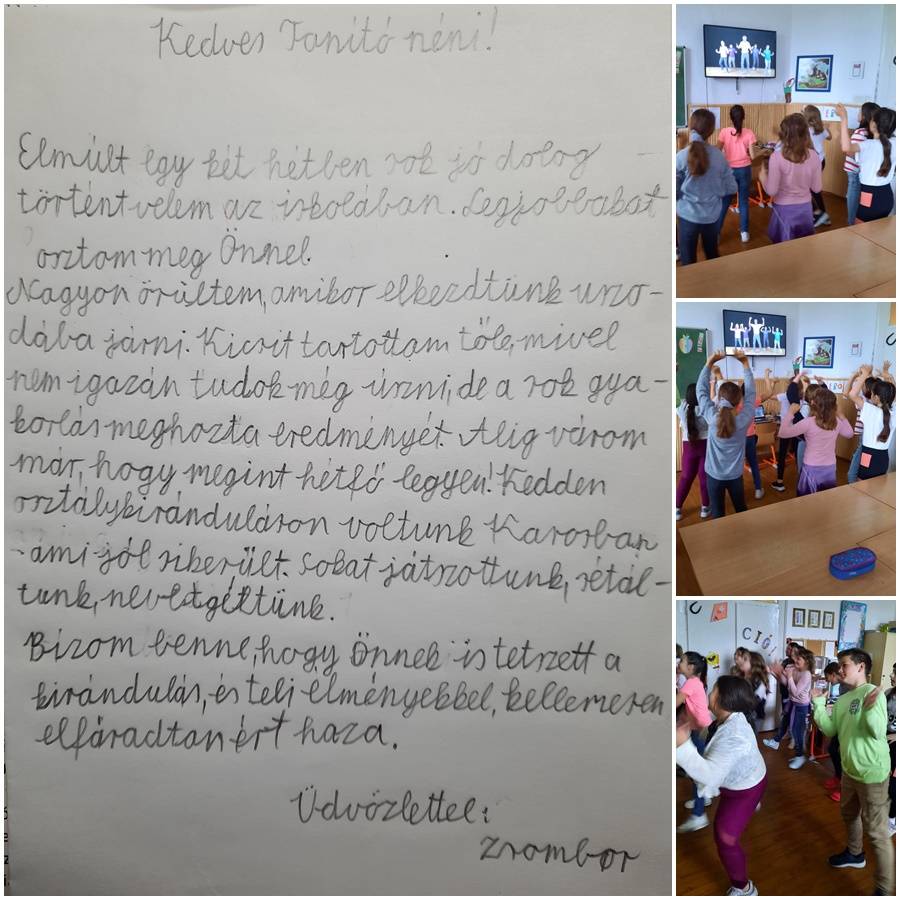 Kedves Tanító néni!
Elmúlt egy két hétben sok jó dolog
történt velem az iskolában. Legjobbakat
osztom meg Önnel.
Nagyon örültem, amikor elkezdtünk uszo-
dába járni. Kicsit tartottam tőle, mivel
nem igazán tudok még úszni, de a sok gya-
korlás meghozta eredményét. Alig várom
már, hogy megint hétfő legyen! Kedden
osztálykiránduláson voltunk Karosban
- ami jól sikerült. Sokat játszottunk, sétál-
tunk, nevetgéltünk.
Bízom benne, hogy Önnek is tetszett a
kirándulás, és teli élményekkel, kellemesen
elfáradtan ért haza.
Üdvözlettel:
Zsombor
CIÓ